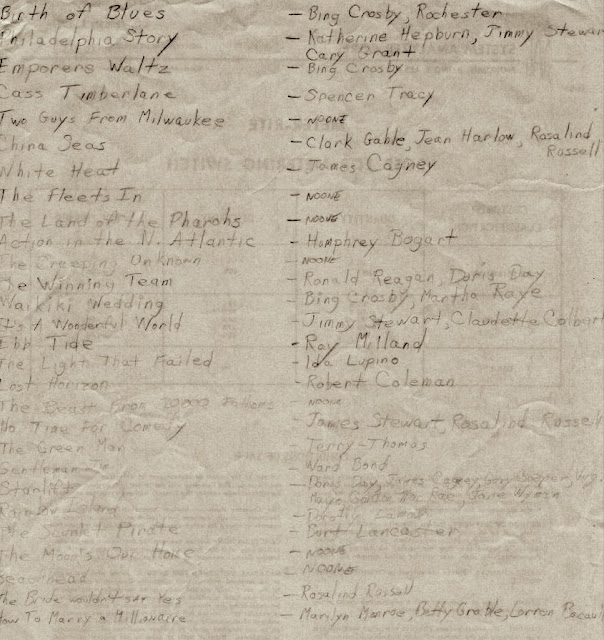 Birth of Blues - Bing Crosby, Rochester
Philadelphia Story - Katherine Hepburn, Jimmy Stewar
Cary Grant
Emporers Waltz - Bing Crosby
Cass Timberlane - Spencer Tracy
Two Guys From Milwaukee - NOONE
China Seas - Clark Gable, Jean Harlow, Rosalind
Rossell
White Heat - James Cagney
The Fleets In - NOONE
The Land of the Pharohs - NOONE
Action in the N. Atlantic - Humphrey Bogart
The Creeping Unknown - NOONE
The Winning Team - Ronald Reagan, Doris Day
Waikiki Wedding - Bing Crosby, Martha Raye
It's A Wonderful World - Jimmy Stewart, Claudette Colbart
Ebb Tide - Ray Milland
The Light That Failed - Ida Lupino
Lost Horizon - Robert Coleman
The Beast From Fathoms - NOONE
No Time For Comedy - James Stewart, Rosalind Russell
The Green Man - Terry-Thomas
Gentleman - Ward Bond
Starlift - Doris Day, James Cagney, Gary Cooper,
Gordon Mac Rae, Jane Wyman
Rainbow Island - Dorothy Lamor
The Pirate - Burt Lancaster
The Moon's Our Home - NOONE
Beachhead - NOONE
The Bride wouldn't say Yes - Rosalind Rossell
How To Marry a Millionaire - Marilyn Monroe, Betty Grable, Lorren Bacaul